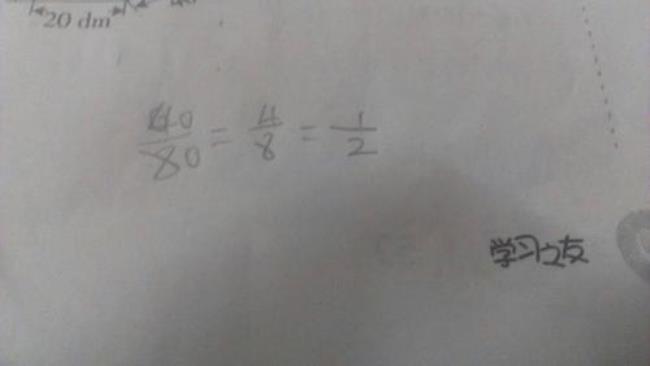 20 dm
40/80 = 4/8 = 1/2
学习之友